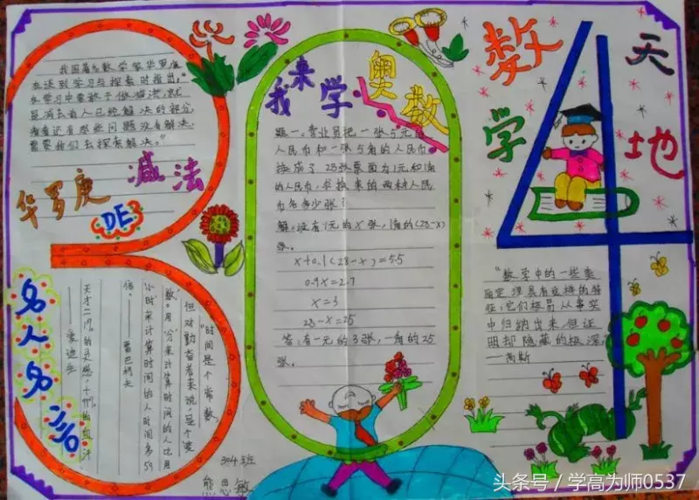 数学天地
我来学奥数
华罗庚
DE
减法
名人名言
我国著名数学家华罗庚
在谈到学习与探索时指出：“
在学习中要敢于做减法，就
是减去前人已经解决的部分，
看看还有那些问题没有解决，
需要我们去探索解决。”
题一、营业员把一张5元的
人民币和一张5角的人民币
换成了28张票面为1元和1角
的人民币，求换来的两种人民
币各多少张？
解：设有1元的x张，1角的(28-x)
张。
x+0.1(28-x)=5.5
0.9x=2.7
x=3
28-x=25
答：有一元的3张，一角的25
张。
“数学中的一些美
丽定理具有这样的特
性：它们极易从事实
中归纳出来，但证
明却隐藏的极深。
——高斯
“时间是个常数，
但对勤奋者来说，是个‘变
数’。用‘分’来计算时间的人比用
‘小时’来计算时间的人时间多59
倍。
——雷巴柯夫
天才=1%的灵感+99%的血汗
——爱迪生
304班
熊思敏
头条号 / 学高为师0537